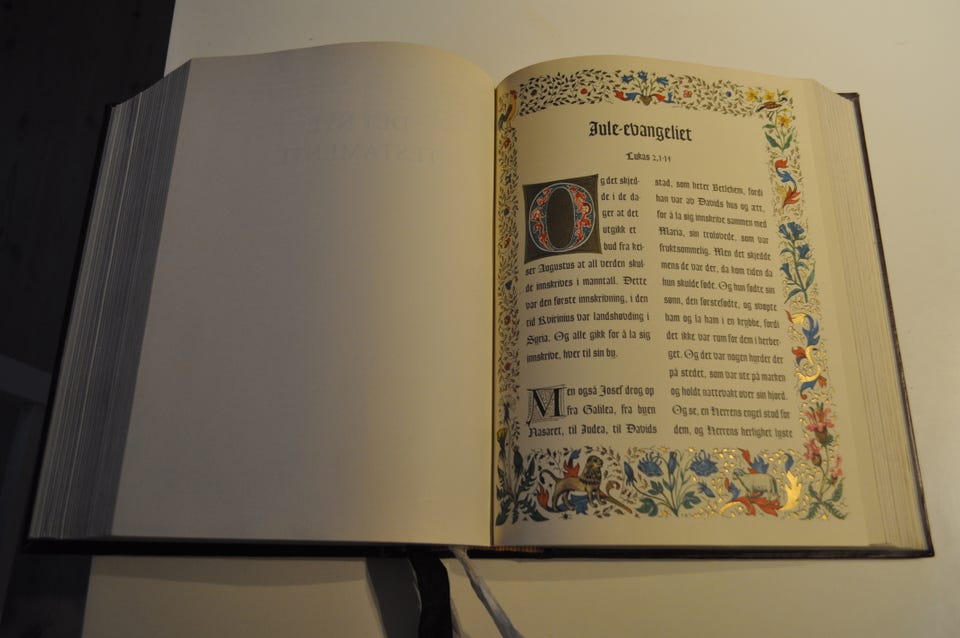 Jule-evangeliet
Lukas 2,1-14
Og det skjed-
de i de da-
ger at det
utgikk et
bud fra kei-
ser Augustus at all verden skul-
de innskrives i manntall. Dette
var den første innskrivning, i den
tid Kvirinius var landshøvding i
Syria. Og alle gikk for å la sig
innskrive, hver til sin by.
Men også Josef drog op
fra Galilea, fra byen
Nasaret, til Judea, til Davids
stad, som heter Betlehem, fordi
han var av Davids hus og ætt,
for å la sig innskrive sammen med
Maria, sin trolovede, som var
fruktsommelig. Men det skjedde
mens de var der, da kom tiden da
hun skulde føde. Og hun fødte sin
sønn, den førstefødte, og svøpte
ham og la ham i en krybbe, fordi
det ikke var rum for dem i herber-
get. Og det var nogen hyrder der
på stedet, som var ute på marken
og holdt nattevakt over sin hjord.
Og se, en Herrens engel stod for
dem, og Herrens herlighet lyste